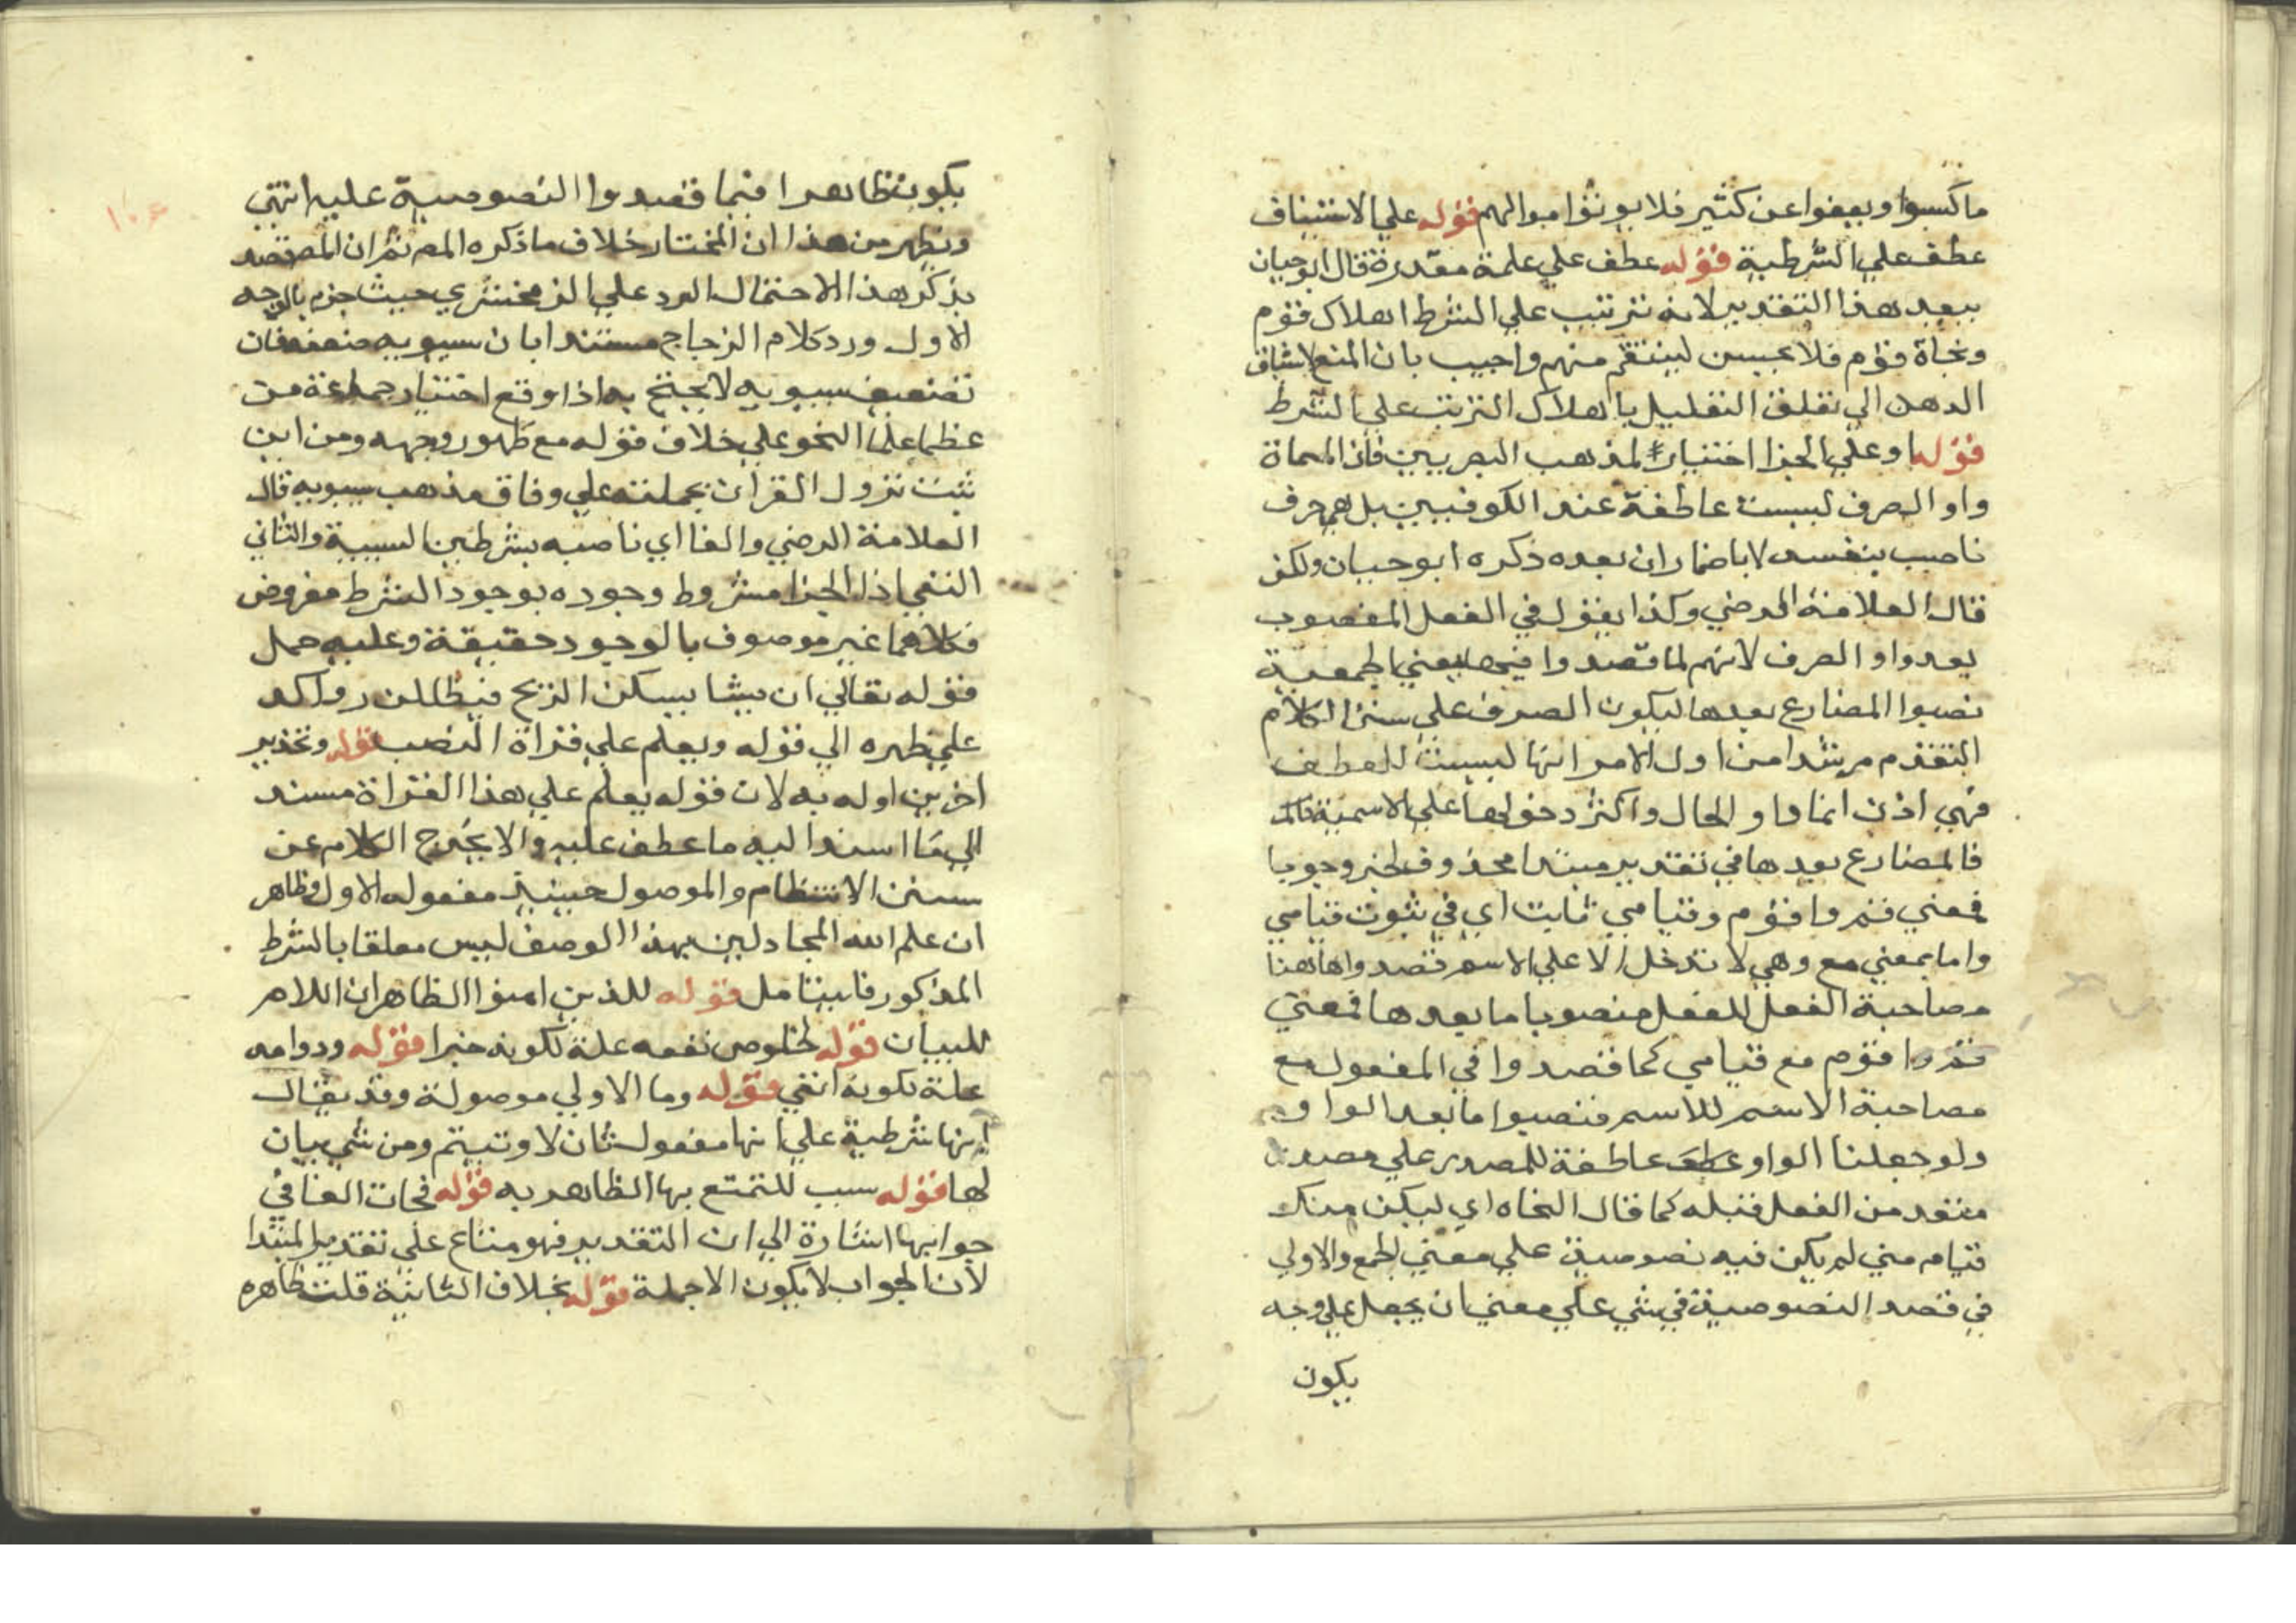 ما كسبوا ويعفوا عن كثير فلا يوثوا مبوالهم قوله علي الاستيناف
عطف علي الشرطية قوله عطف علي علمة مقدرة قال ابو حيان
يبعد هذا التقدير لانه ترتب علي الشرط اهلاك قوم
ونجاة قوم فلا يحسن لينتقم منهم واجيب بان المنع
الدهن الي تعلق التعليل با اهلاك الترتب علي الشرط
قوله او علي الجزا اختيار لمذهب البصريين فان المسماة
واو الصرف ليست عاطفة عند الكوفيين بل هي حرف
ناصب بنفسه لا باضمار ان بعده ذكره ابو حيان ولكن
قال العلامة الرضي وكذا يقول في الفعل المغصوب
بعد واو الصرف لانهم لما قصدوا فيها معني الجمعية
نصبوا المضارع بعدها ليكون الصرف علي سنن الكلام
المتقدم مرشدا من اول الامر انها ليست للعطف
فهي اذن اما واو الحال واكثر دخولها علي الاسمية
فالمضارع بعدها في تقدير مبتدا محذوف الخبر وجوبا
فمعني قم واقوم وقيامي ثابت اي في ثبوت قيامي
واما بمعني مع وهي لا تدخل الا علي الاسم قصدوا هاهنا
مصاحبة الفعل للفعل منصوبا ما بعدها فمعني
قم واقوم مع قيامي كما قصدوا في المفعول مع
مصاحبة الاسم للاسم فنصبوا ما بعد الواو
ولو جعلنا الواو عطف عاطفة للمصدر علي مصدر
متقدم من الفعل قبله كما قال النحاه اي ليكن منك
قيام مني لم يكن فيه نصوصية علي معني الجمع والاولي
في قصد النصوصية في شي علي معني ان يجعل علي وجه
يكون
يكون ظاهرا فيما قصدوا النصوصية عليه انتهي
ويظهر من هذا ان المختار خلاف ما ذكره المصر ثم ان المص قصد
بذكر هذا الاحتمال الرد علي الزمخشري حيث جزم بالوجه
الاول ورد كلام الزجاج مستندا بان سيبويه ضعفه فان
تضعيف سيبويه لا يحتج به اذا وقع اختيار جماعة من
عظما علما النحو علي خلاف قوله مع ظهور وجهه ومن اين
ثبت نزول القران بجملته علي وفاق مذهب سيبويه قال
العلامة الرضي والفا اي ناصبه بشرطين السببية والثاني
النفي اذ الجزا مشروط وجوده بوجود الشرط مفروض
فكلاهما غير موصوف بالوجود حقيقة وعليه حمل
قوله تعالي ان يشا يسكن الريح فيظللن رواكد
علي ظهره الي قوله ويعلم علي قراة النصب قوله وتحذير
اخرين اوله به لان قوله يعلم علي هذا القراة مسند
الي ما اسند اليه ما عطف عليه والا يخرج الكلام عن
سنن الانتظام والموصول حينيذ مفعوله الاول وظاهر
ان علم الله المجادلين بهذا الوصف ليس معلقا بالشرط
المذكور فاليتامل قوله للذين امنوا الظاهر ان اللام
للبيان قوله لخلوص نفعه علة لكونه خيرا قوله ودوامه
علة لكونه ابقي قوله وما الاولي موصولة وقد يقال
انها شرطية علي انها مفعول ثان لاوتيتم ومن شي بيان
لها قوله سبب للتمتع بها الظاهر به قوله فجات الفا في
جوابها اشارة الي ان التقدير فهو متاع علي تقدير المبتدا
لان الجواب لا يكون الا جملة قوله بخلاف الثانية قلت ظاهره